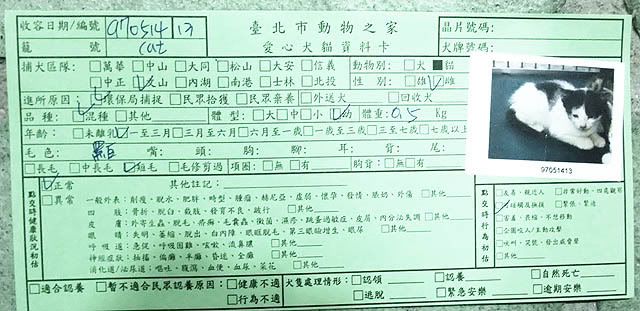 收容日期/編號 970514 13 臺北市動物之家 晶片號碼:
籠 號 cat 愛心犬貓資料卡 犬牌號碼:
捕犬區隊: □萬華 □中山 □大同 □松山 □大安 □信義 動物別: □犬 ■貓
□中正 □文山 □內湖 □南港 □士林 □北投 性 別: □雄 □雌
進所原因: □環保局捕捉 □民眾拾獲 □民眾棄養 □外送犬 □回收犬
品 種: □混種 □其他 體 型: □大 □中 □小 □幼 體重: 0.5 Kg
年齡: □未離乳 □一至三月 □三月至六月 □六月至一歲 □一歲至三歲 □三至七歲 □七歲以上
毛 色: 嘴: 頭: 胸: 腳: 耳: 背: 尾:
□長毛 □中長毛 □短毛 □毛修剪過 項圈: □無 □有 胸背: □無 □有
97051413
點交時健康狀況初估
□正常 其他註記:
□異常 一般外表: 削瘦、脫水、肥胖、畸型、腫瘤、赫尼亞、虛弱、懷孕、發情、脹奶、外傷 □其他
四 肢: 骨折、脫臼、截肢、發育不良、跛行 □其他
皮 膚: 外寄生蟲、脫毛、疥癬、毛囊蟲、黴菌、濕疹、跳蚤過敏症、皮屑、內分泌失調 □其他
眼 睛: 失明、萎縮、脫出、白內障、眼瞼脫毛、第三眼瞼增生、眼屎 □其他
呼 吸 道: 急促、呼吸困難、咳嗽、流鼻膿 □其他
神經症狀: 抽搐、偏癱、半癱、昏迷、全癱 □其他
消化道/泌尿道: 嘔吐、腹瀉、血便、血尿、菜花 □其他
點交時行為初估
□友善、親近人 □非常好動、四處觀察
□緊張、
□害羞、畏縮、不想移動
□企圖咬人/主動攻擊
□吠叫、哭號、發出威脅聲
□其他
□適合認養 □暫不適合民眾認養原因: □健康不適 犬隻處理情形: □認領 □認養 □自然死亡
□行為不適 □逃脫 □緊急安樂 □逾期安樂